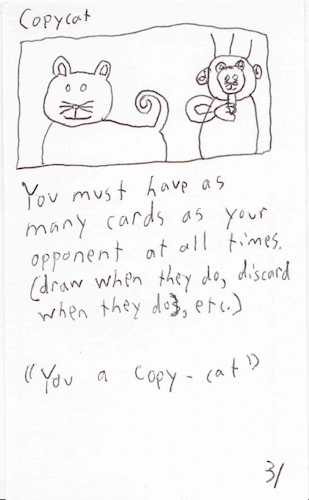 Copycat
You must have as
many cards as your
opponent at all times.
(draw when they do, discard
when they do, etc.)
"You a copy-cat"
31